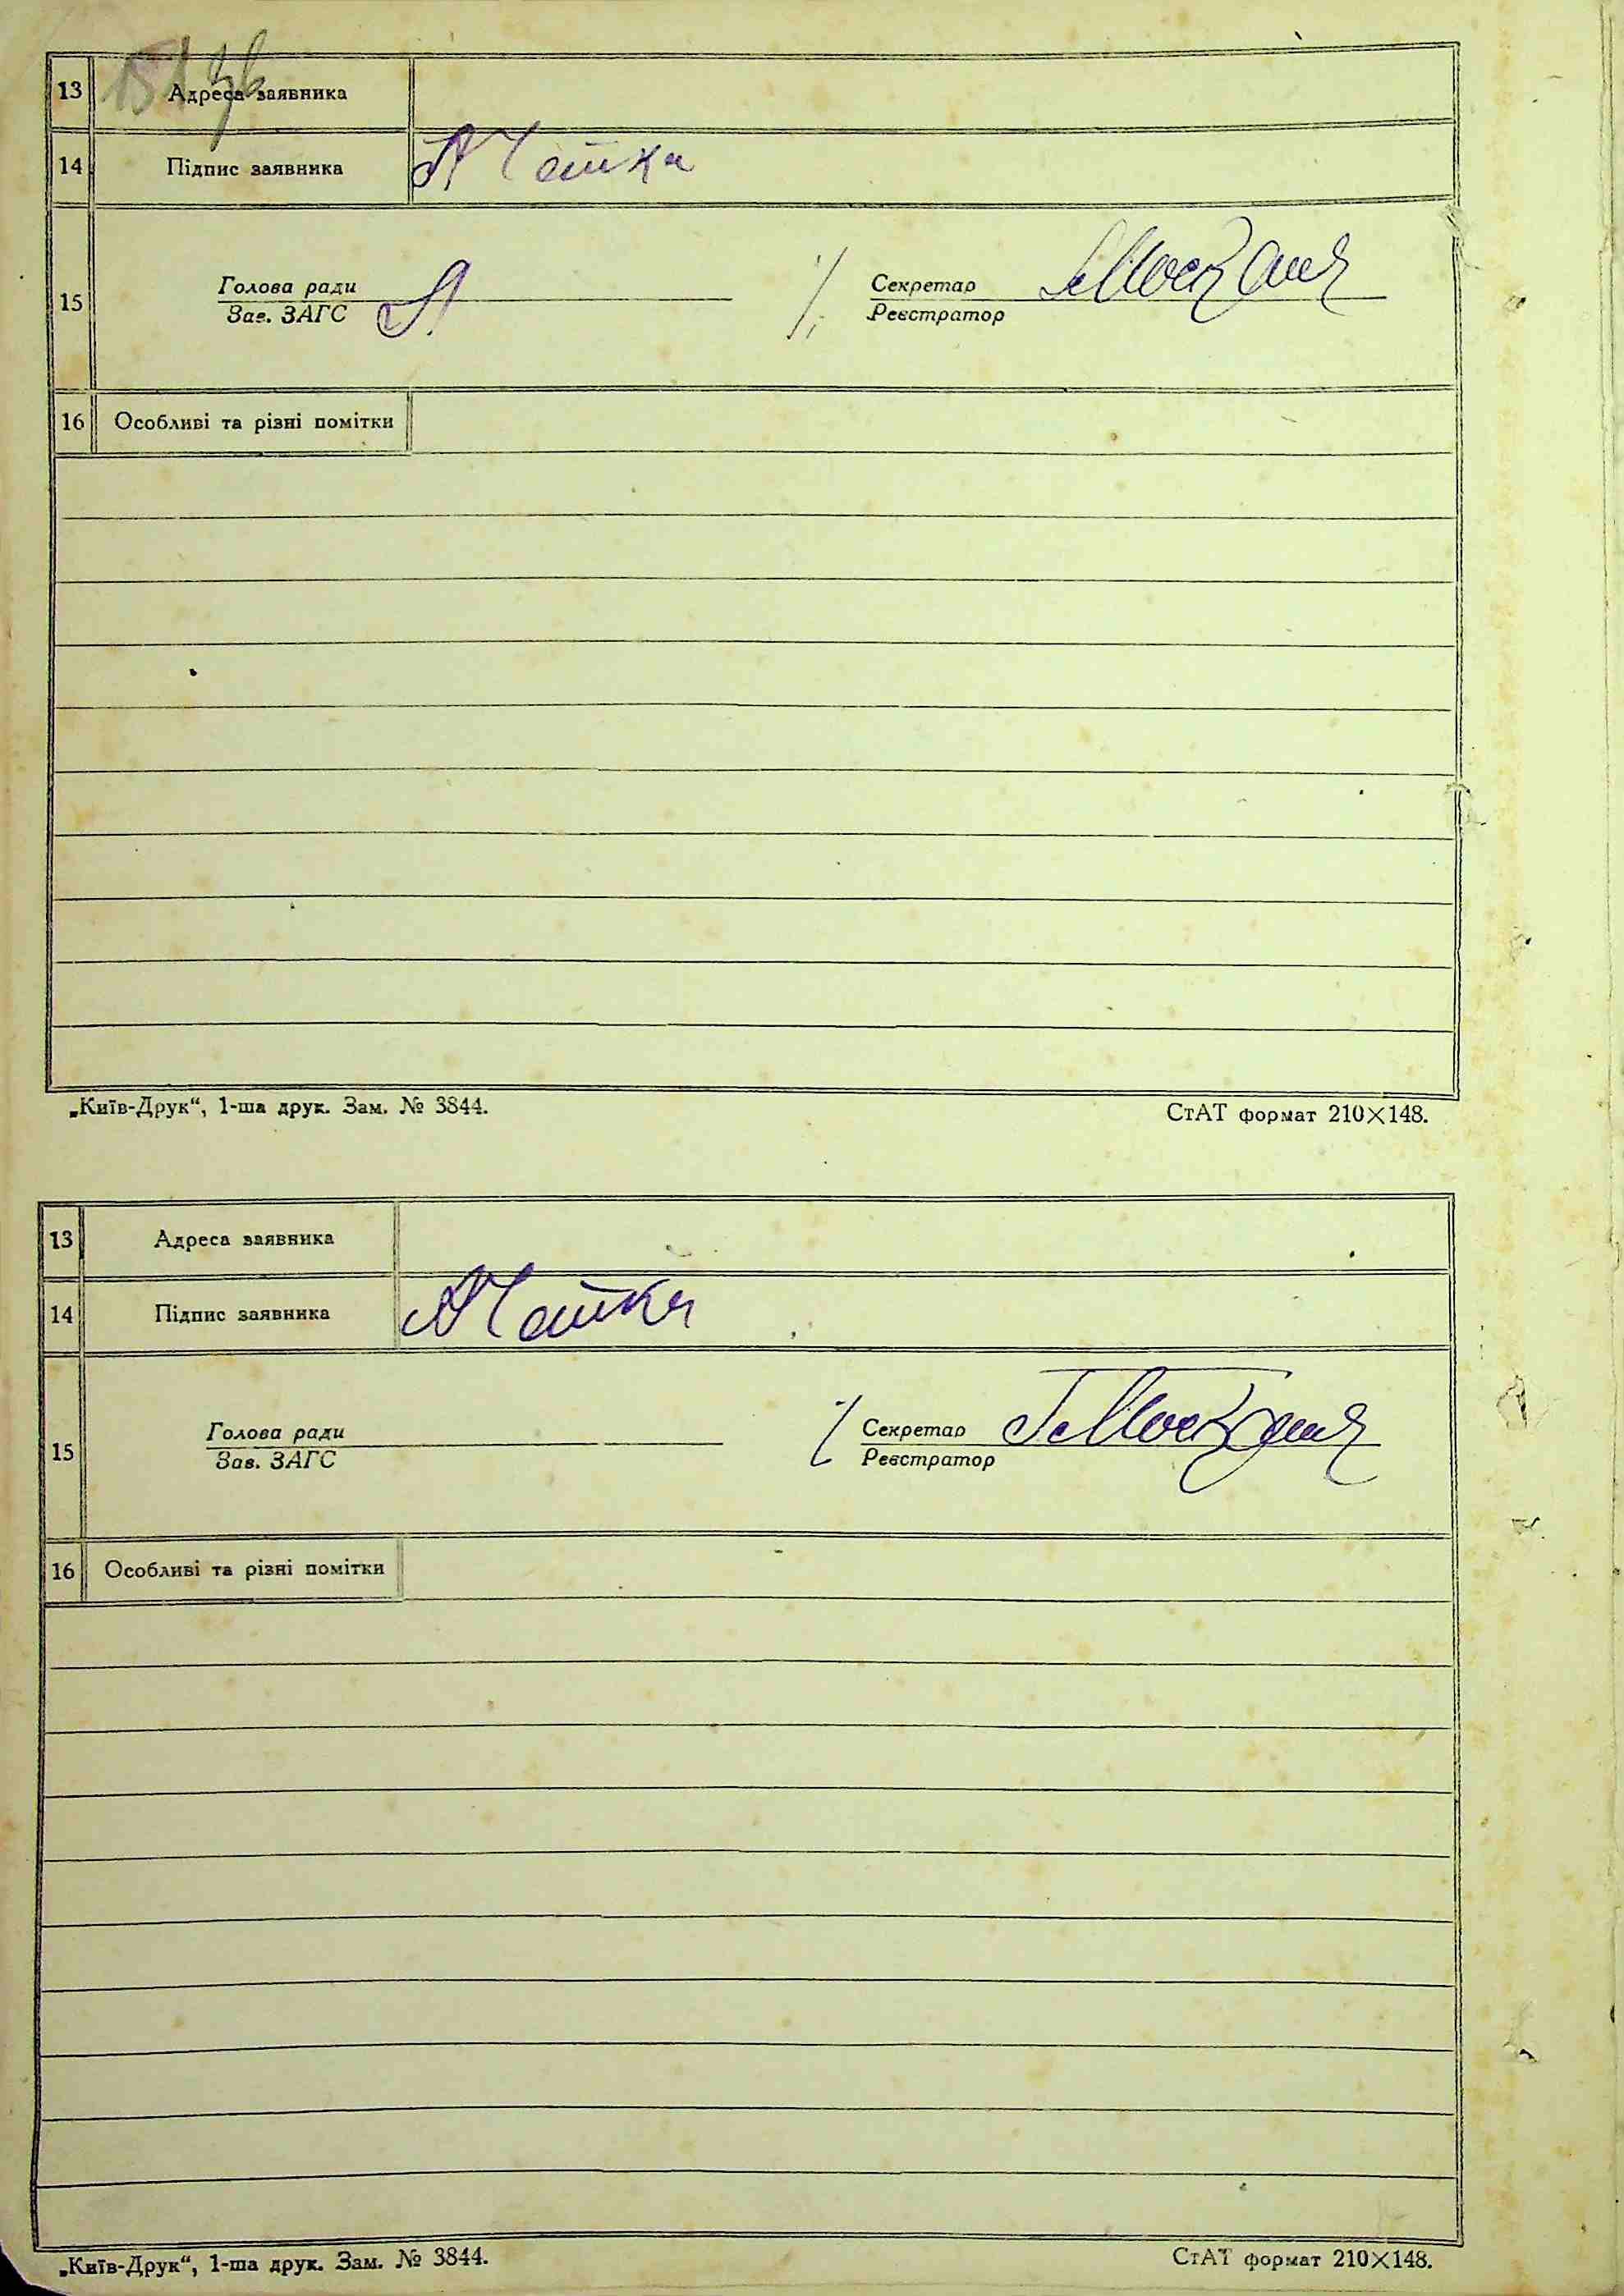 151 зв
13 Адреса заявника
14 Підпис заявника А Чайка
15 Голова ради Секретар
Зав. ЗАГС Реєстратор
16 Особливі та різні помітки
„Київ-Друк“, 1-ша друк. Зам. № 3844. СтАТ формат 210×148.
13 Адреса заявника
14 Підпис заявника А Чайка
15 Голова ради Секретар
Зав. ЗАГС Реєстратор
16 Особливі та різні помітки
„Київ-Друк“, 1-ша друк. Зам. № 3844. СтАТ формат 210×148.